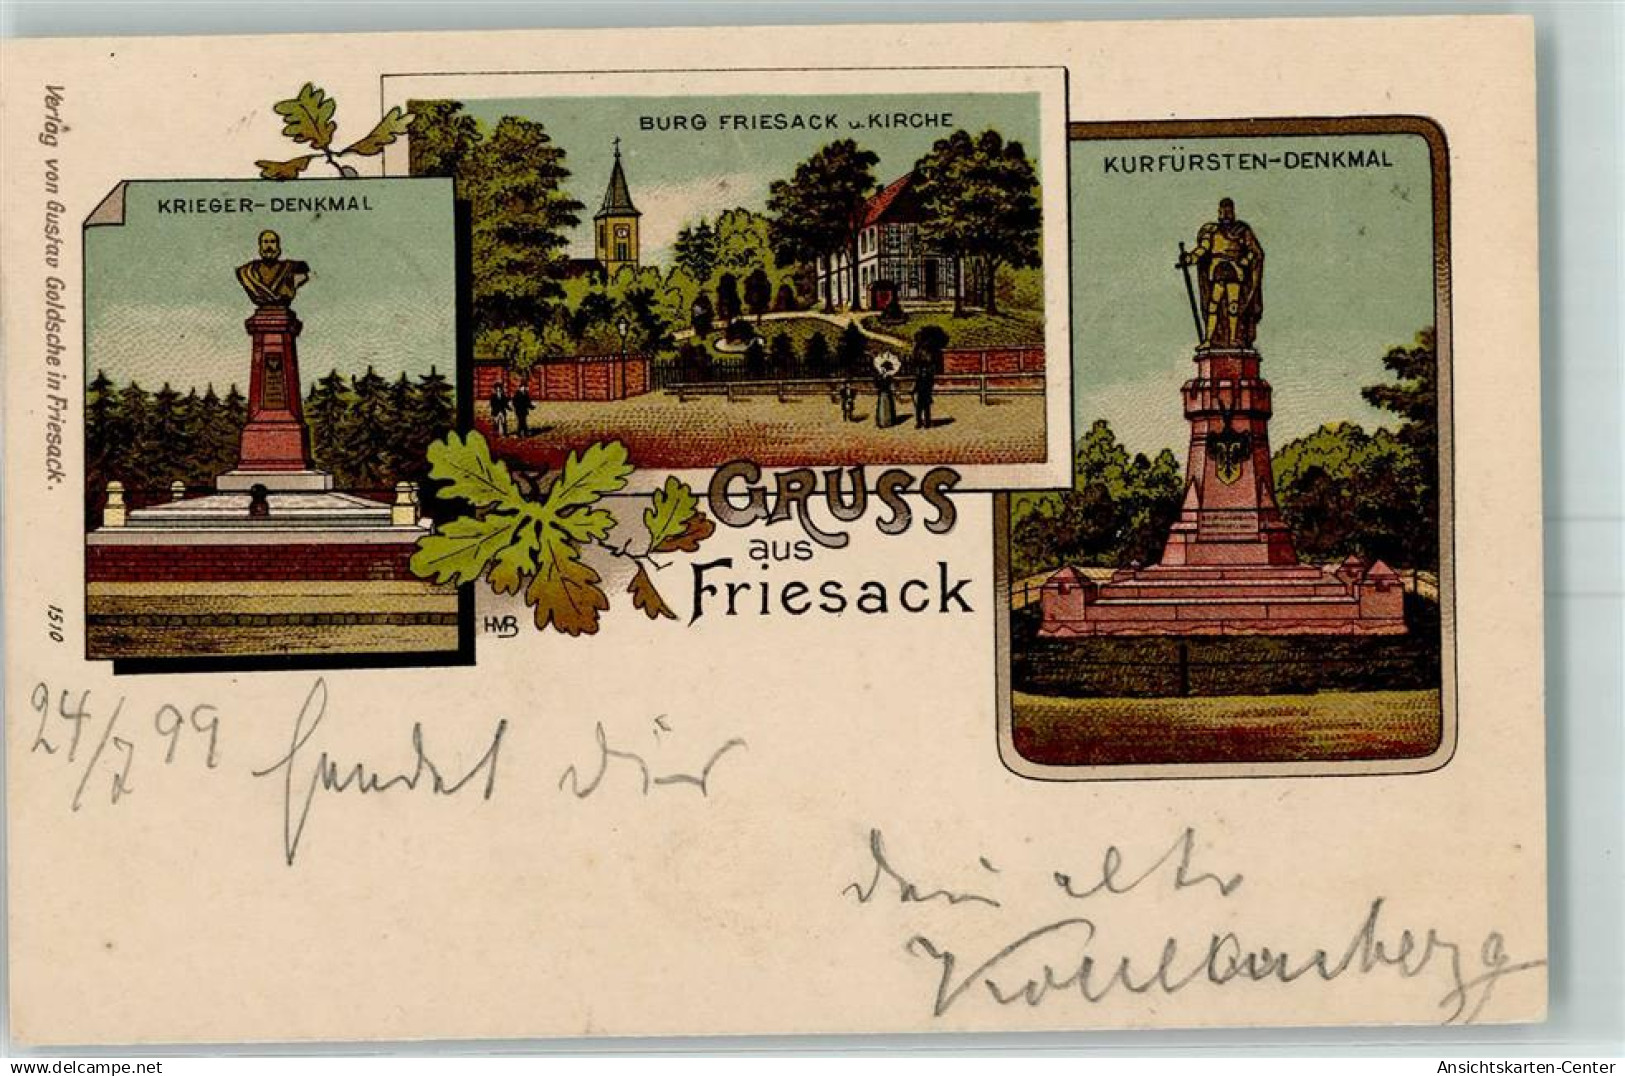 Verlag von Gustav Goldsche in Friesack.
1510
KRIEGER-DENKMAL
BURG FRIESACK u. KIRCHE
KURFÜRSTEN-DENKMAL
GRUSS
aus
Friesack
HMB
24/7 99 sendet Dir
dein alter
delcampe.net
Ansichtskarten-Center